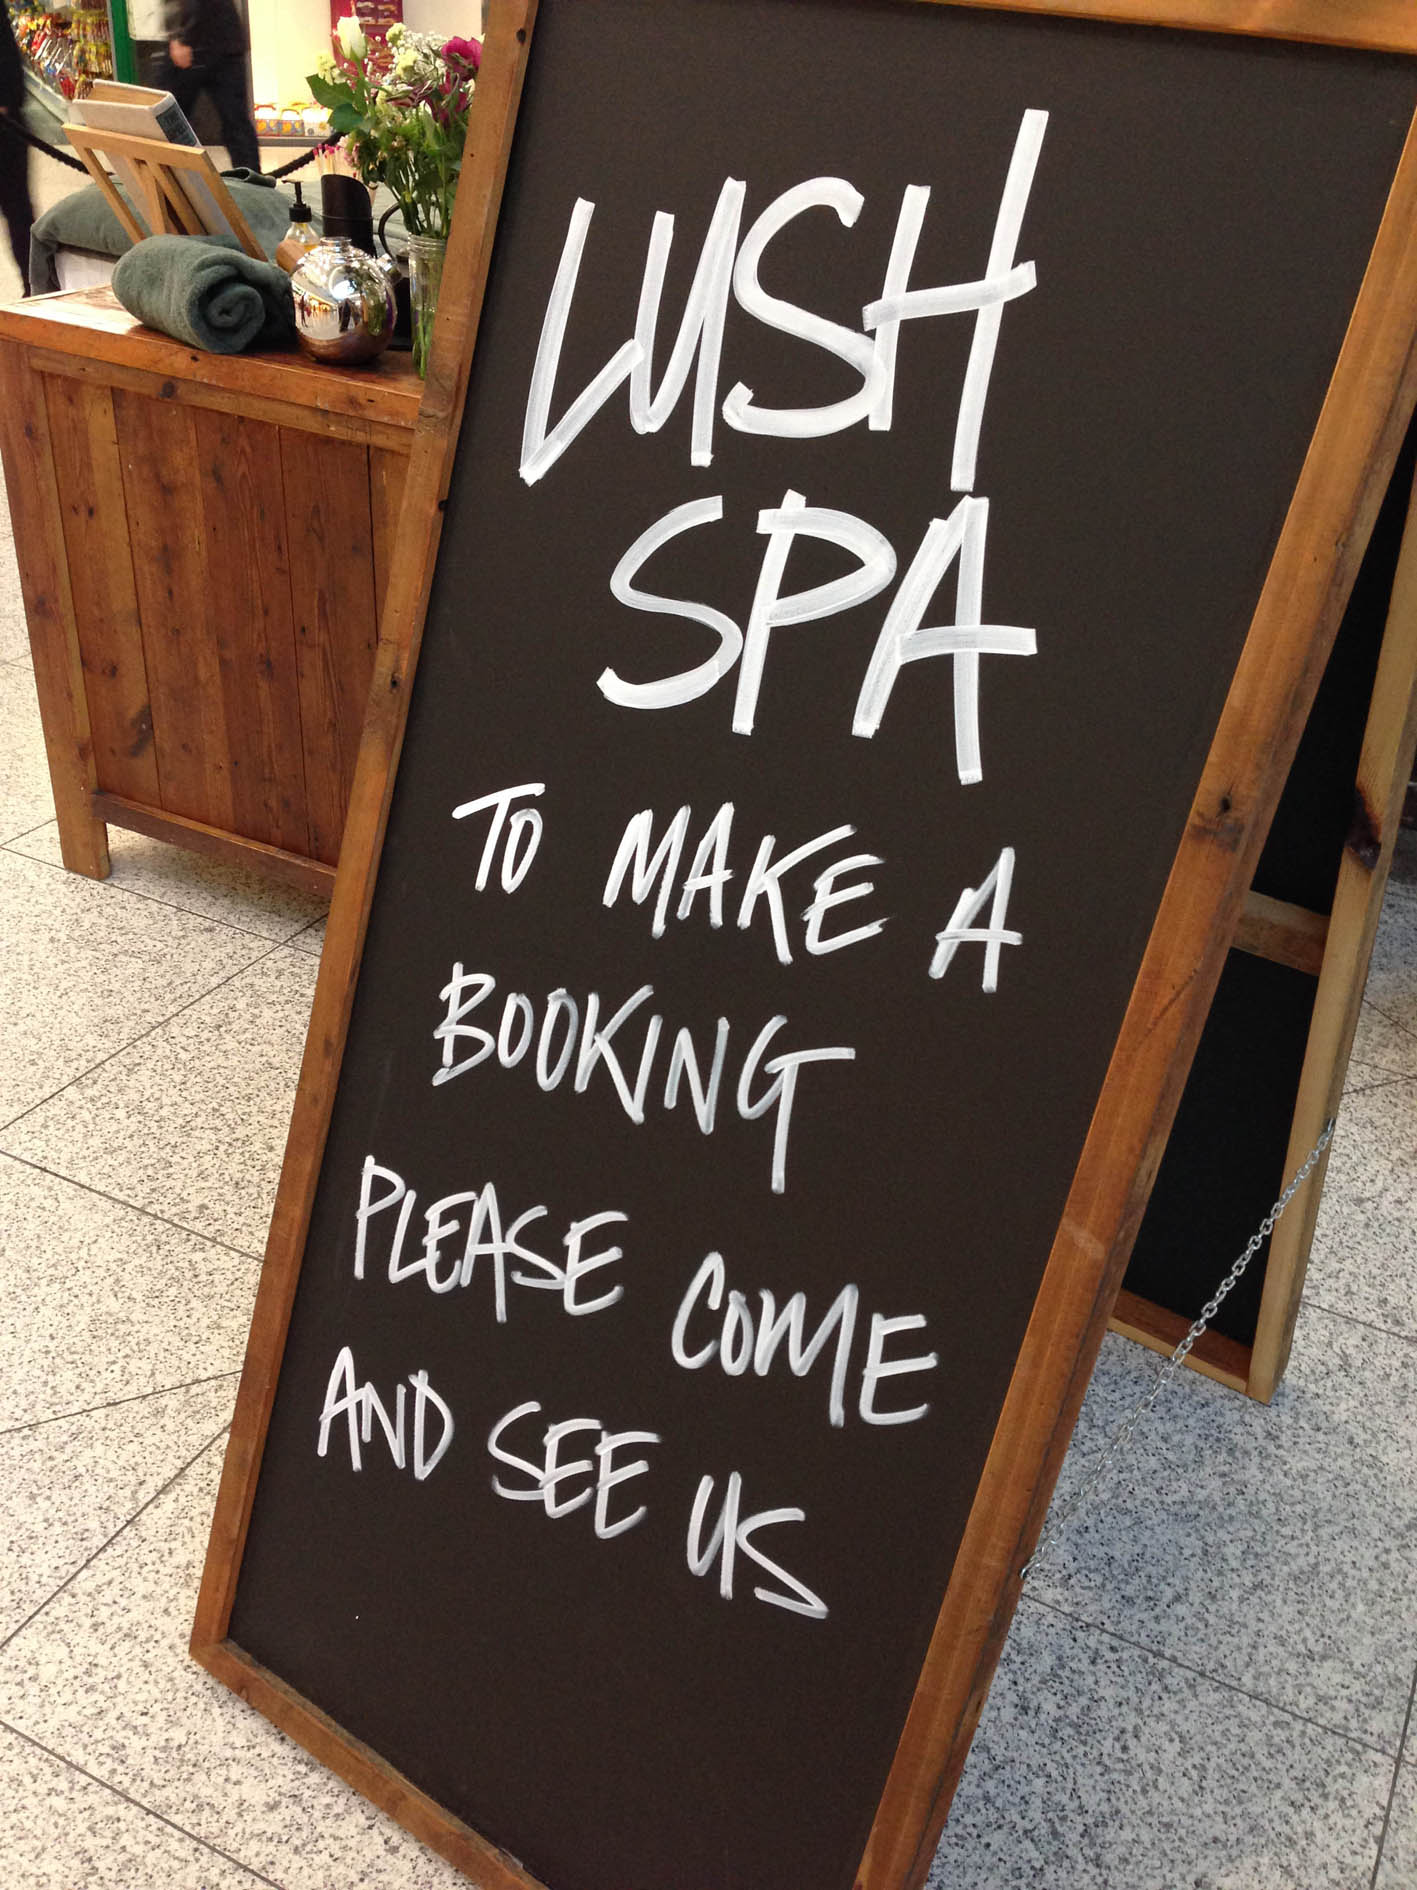 LUSH
SPA
TO MAKE A
BOOKING
PLEASE COME
AND SEE US